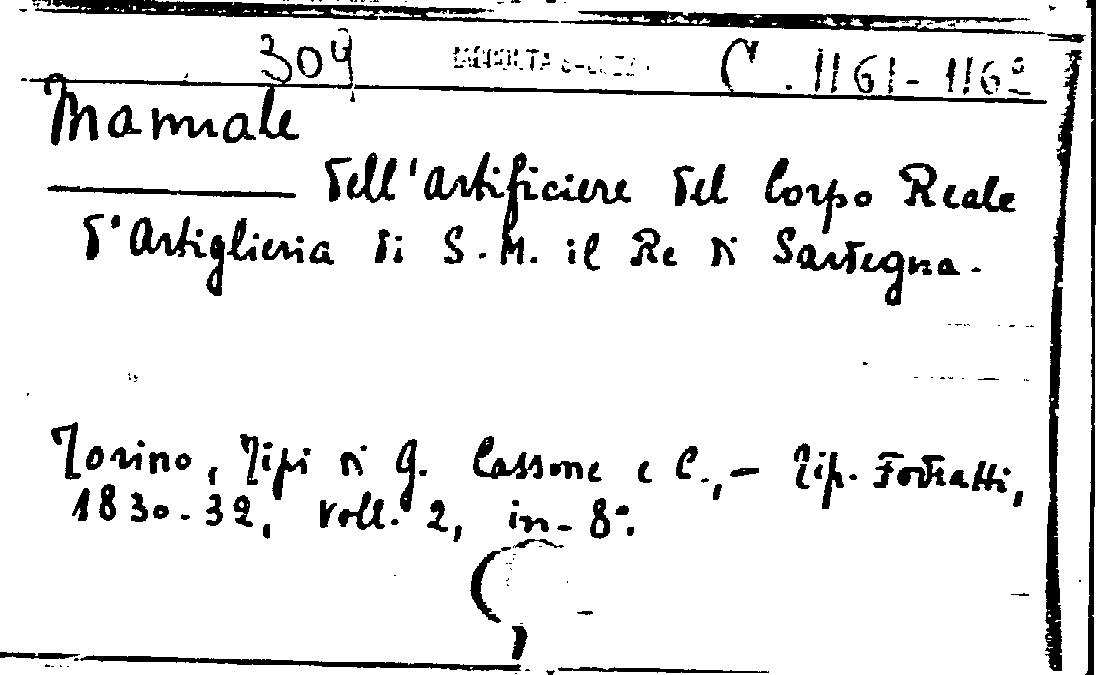 309 RACCOLTA C. 1161-1162
Manuale
dell'Artificiere del Corpo Reale
d'Artiglieria di S.M. il Re di Sardegna.
Torino, Tipi di G. Cassone e C., - Tip. Fodratti,
1830-32, voll. 2, in-8°.